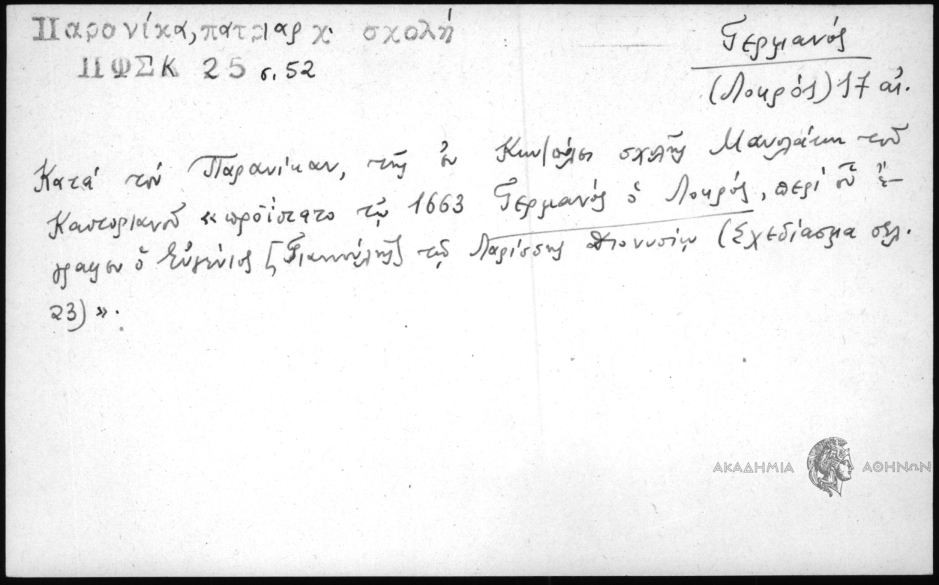 Παρονίκα, πατριαρχ. σχολή
ΠΦΣΚ 25 σ. 52
Γερμανός
(Λοκρός) 17 αἰ.
Κατά τόν Παρανίκαν, τῆς ἐν Κων/πόλει σχολῆς Μανολάκη τοῦ
Καστοριανοῦ «προΐστατο τῷ 1663 Γερμανός ὁ Λοκρός, περί οὗ ἔ-
γραψεν ὁ Εὐγένιος [Γιαννούλης] τῷ Λαρίσσης Διονυσίῳ (Σχεδίασμα σελ.
23)».
ΑΚΑΔΗΜΙΑ ΑΘΗΝΩΝ